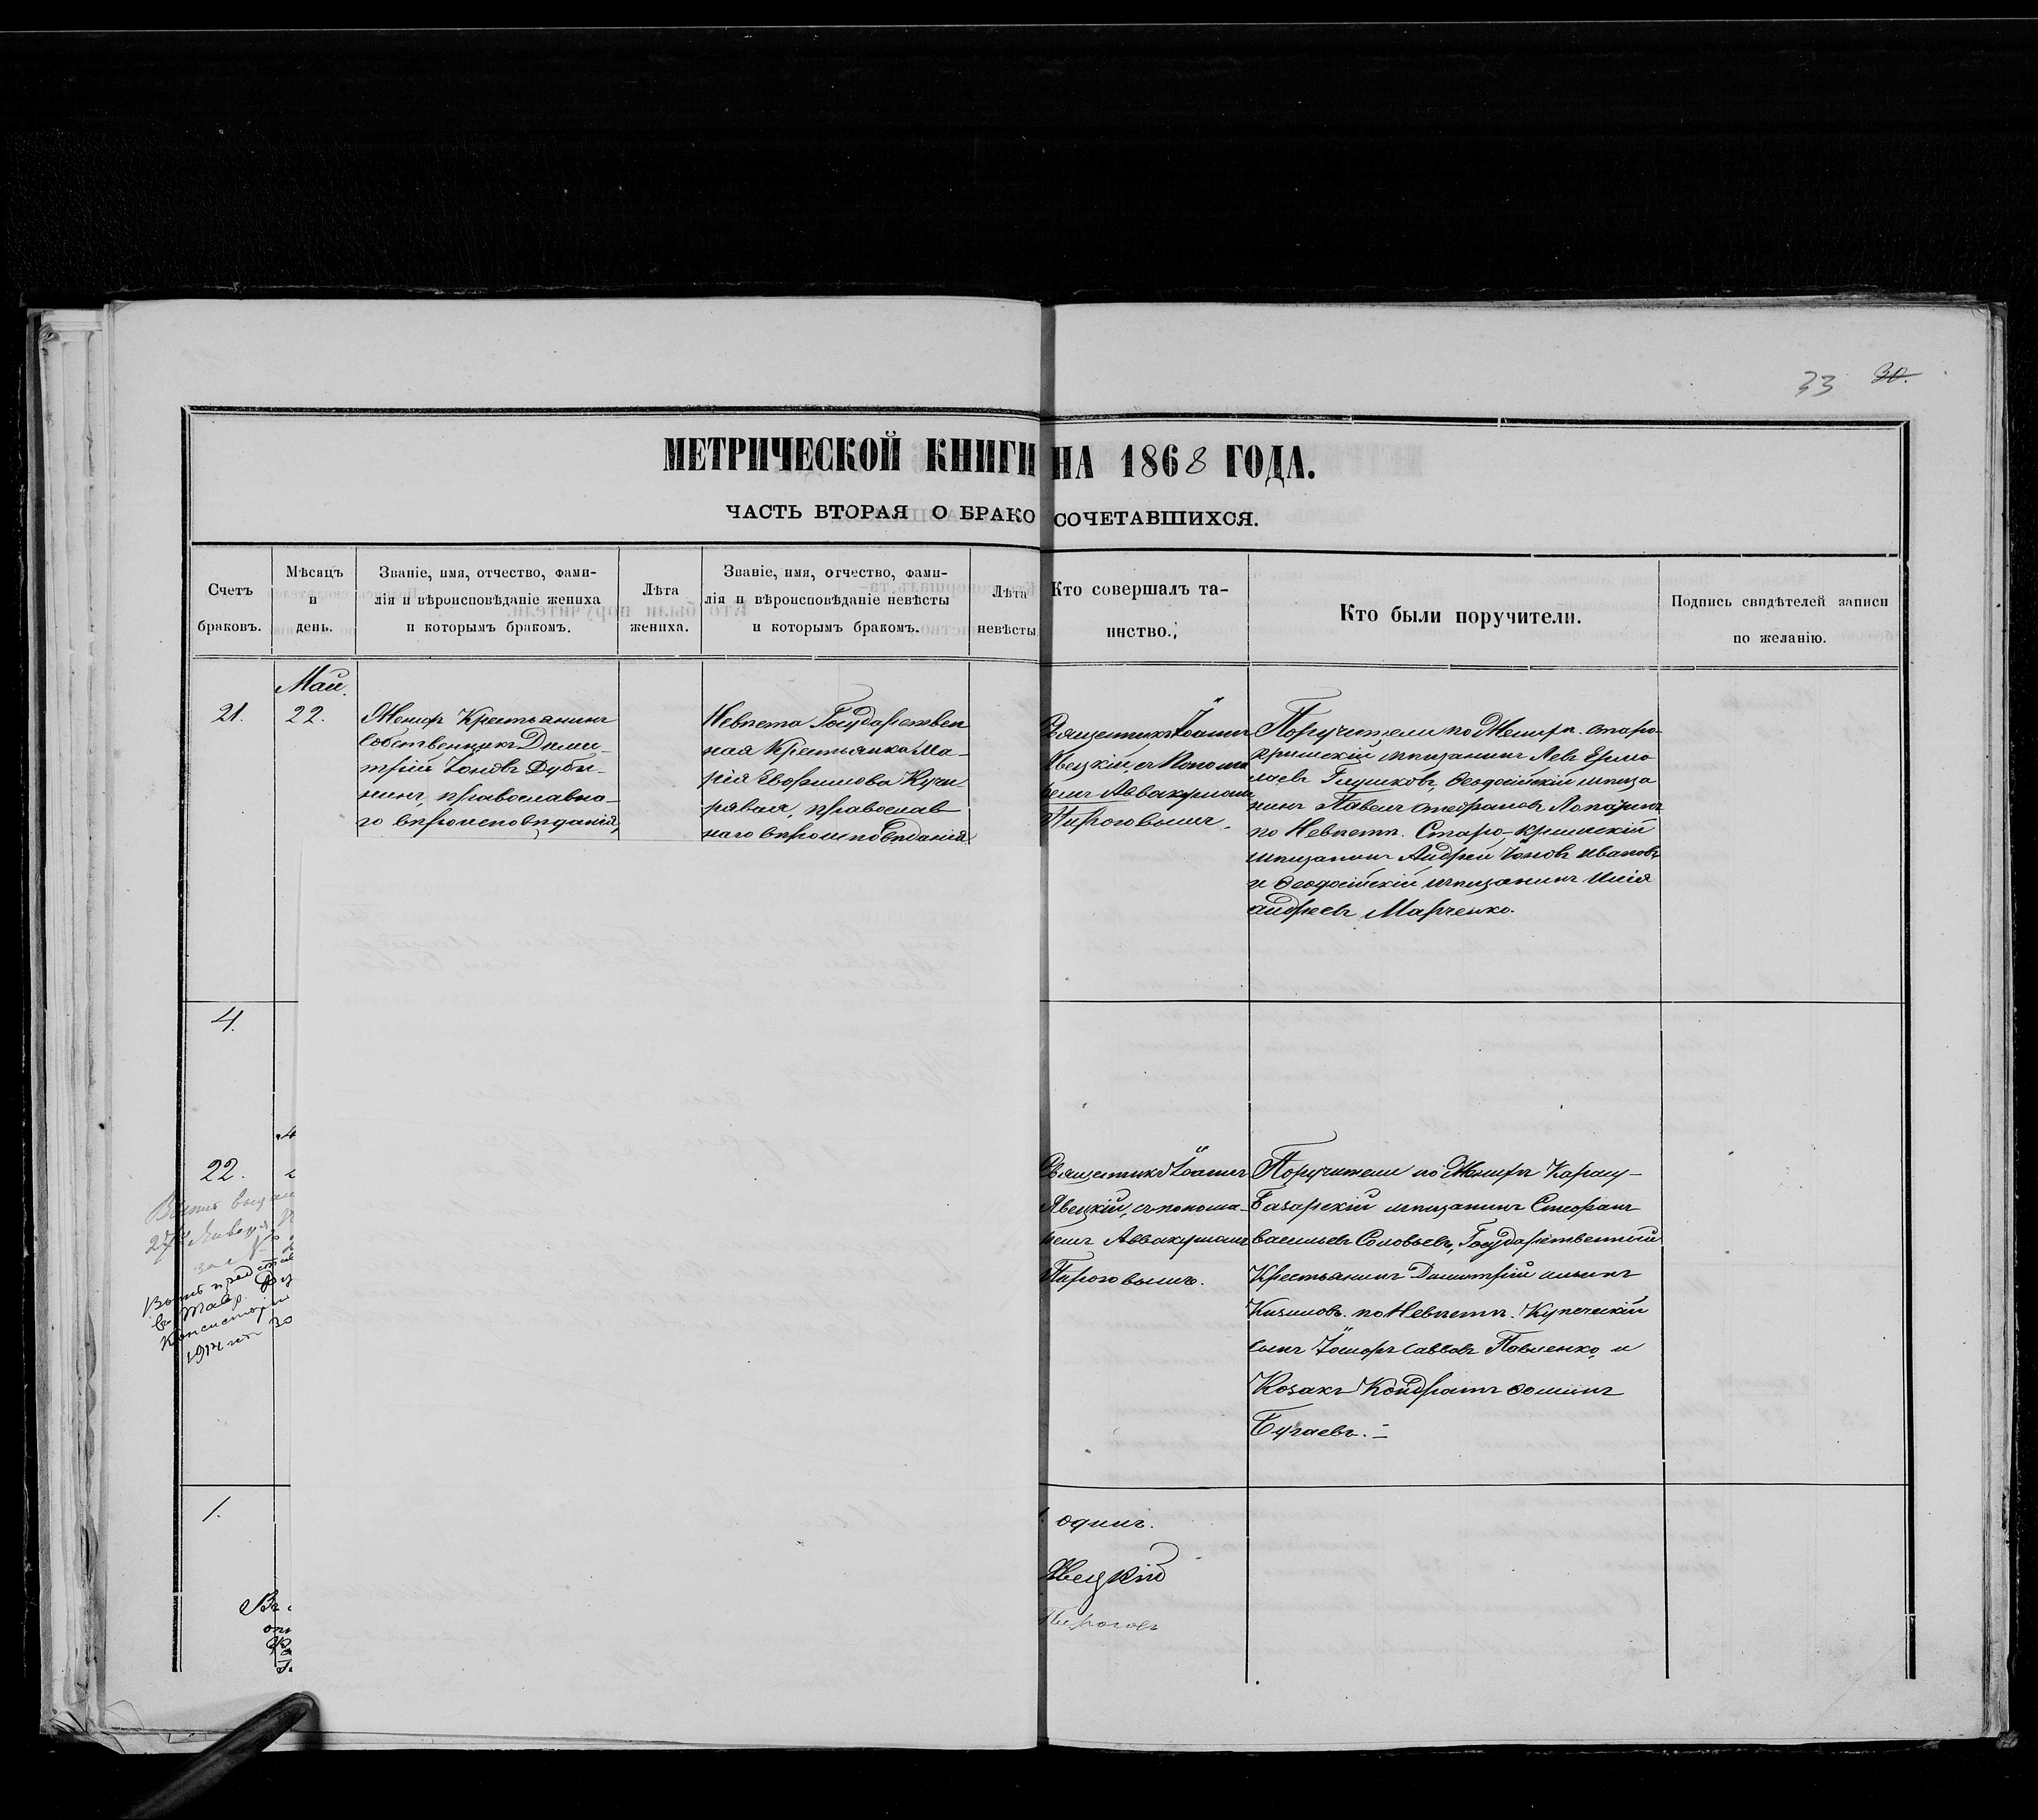 33 30.
МЕТРИЧЕСКОЙ КНИГИ НА 1868 ГОДА.
ЧАСТЬ ВТОРАЯ О БРАКОСОЧЕТАВШИХСЯ.
Счетъ
браковъ.
Мѣсяцъ
и
день.
Званіе, имя, отчество, фами-
лія и вѣроисповѣданіе жениха
и которымъ бракомъ.
Лѣта
жениха.
Званіе, имя, отчество, фами-
лія и вѣроисповѣданіе невѣсты
и которымъ бракомъ.
Лѣта
невѣсты
Кто совершалъ та-
инство.
Кто были поручители.
Подпись свидѣтелей записи
по желанію.
Май.
21.
22.
Женихъ Крестьянинъ
Собственникъ Дими-
трій Іоновъ Дуби-
нинъ, православна-
го вѣроисповѣданія,
Невѣста Государствен
ная Крестьянка Ма-
рія Евфимова Кучи
рявая, православ
наго вѣроисповѣданія
Священникъ Іоаннъ
Явецкій, съ Понома
ремъ Аввакумомъ
Пироговымъ.
Поручители по Женихѣ. старо-
крымскій мѣщанинъ Левъ Ермо
лаевъ Глушковъ, Ѳеодосійскій мѣща
нинъ Павелъ Стефановъ
по Невѣстѣ. Старо-крымскій
мѣщанинъ Андрей Іоновъ Ивановъ
и Ѳеодосійскій мѣщанинъ Илія
Андреевъ Марченко.
4.
22.
27 Января
Консисторіи
Священникъ Іоаннъ
Явецкій, съ понома-
ремъ Аввакумомъ
Пироговымъ.
Поручители по Женихѣ Карасу-
Базарскій мѣщанинъ Стефанъ
Васильевъ Соловьевъ, Государственный
Крестьянинъ Димитрій Ильинъ
Кизиловъ. по Невѣстѣ. Купеческій
сынъ Іосифъ Саввовъ Павленко и
Козакъ Кондратъ Ѳоминъ
Бугаевъ.
1.
одинъ.
Явецкій
Пироговъ